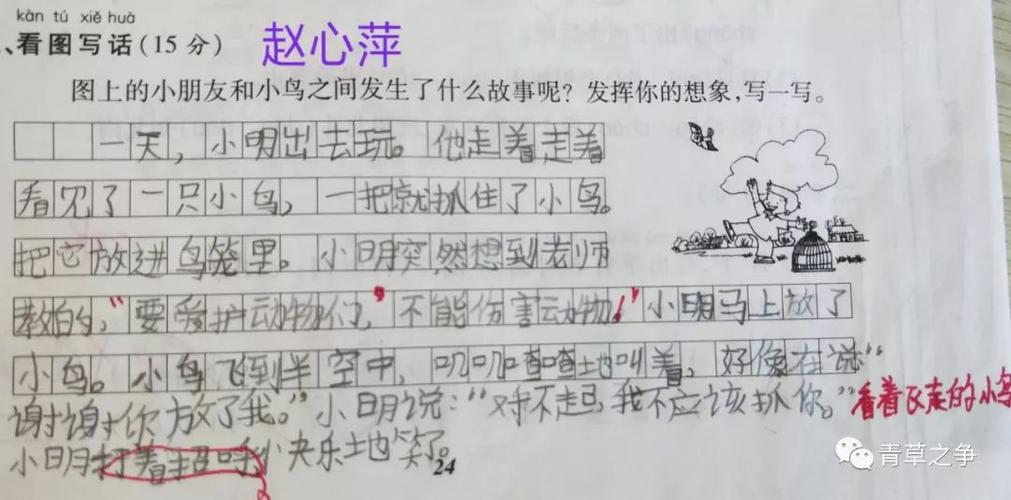 kàn tú xiě huà
、看图写话(15分)
赵心萍
图上的小朋友和小鸟之间发生了什么故事呢?发挥你的想象,写一写。
一天,小明出去玩。他走着走着
看见了一只小鸟,一把就抓住了小鸟。
把它放进鸟笼里。小明突然想到老师
教的,“要爱护动物们,”不能伤害动物!”小明马上放了
小鸟。小鸟飞到半空中,叽叽喳喳地叫着,好像在说“
谢谢你放了我。”小明说:“对不起,我不应该抓你。”看着飞走的小鸟
小明打着招呼快乐地笑了。
24
青草之争